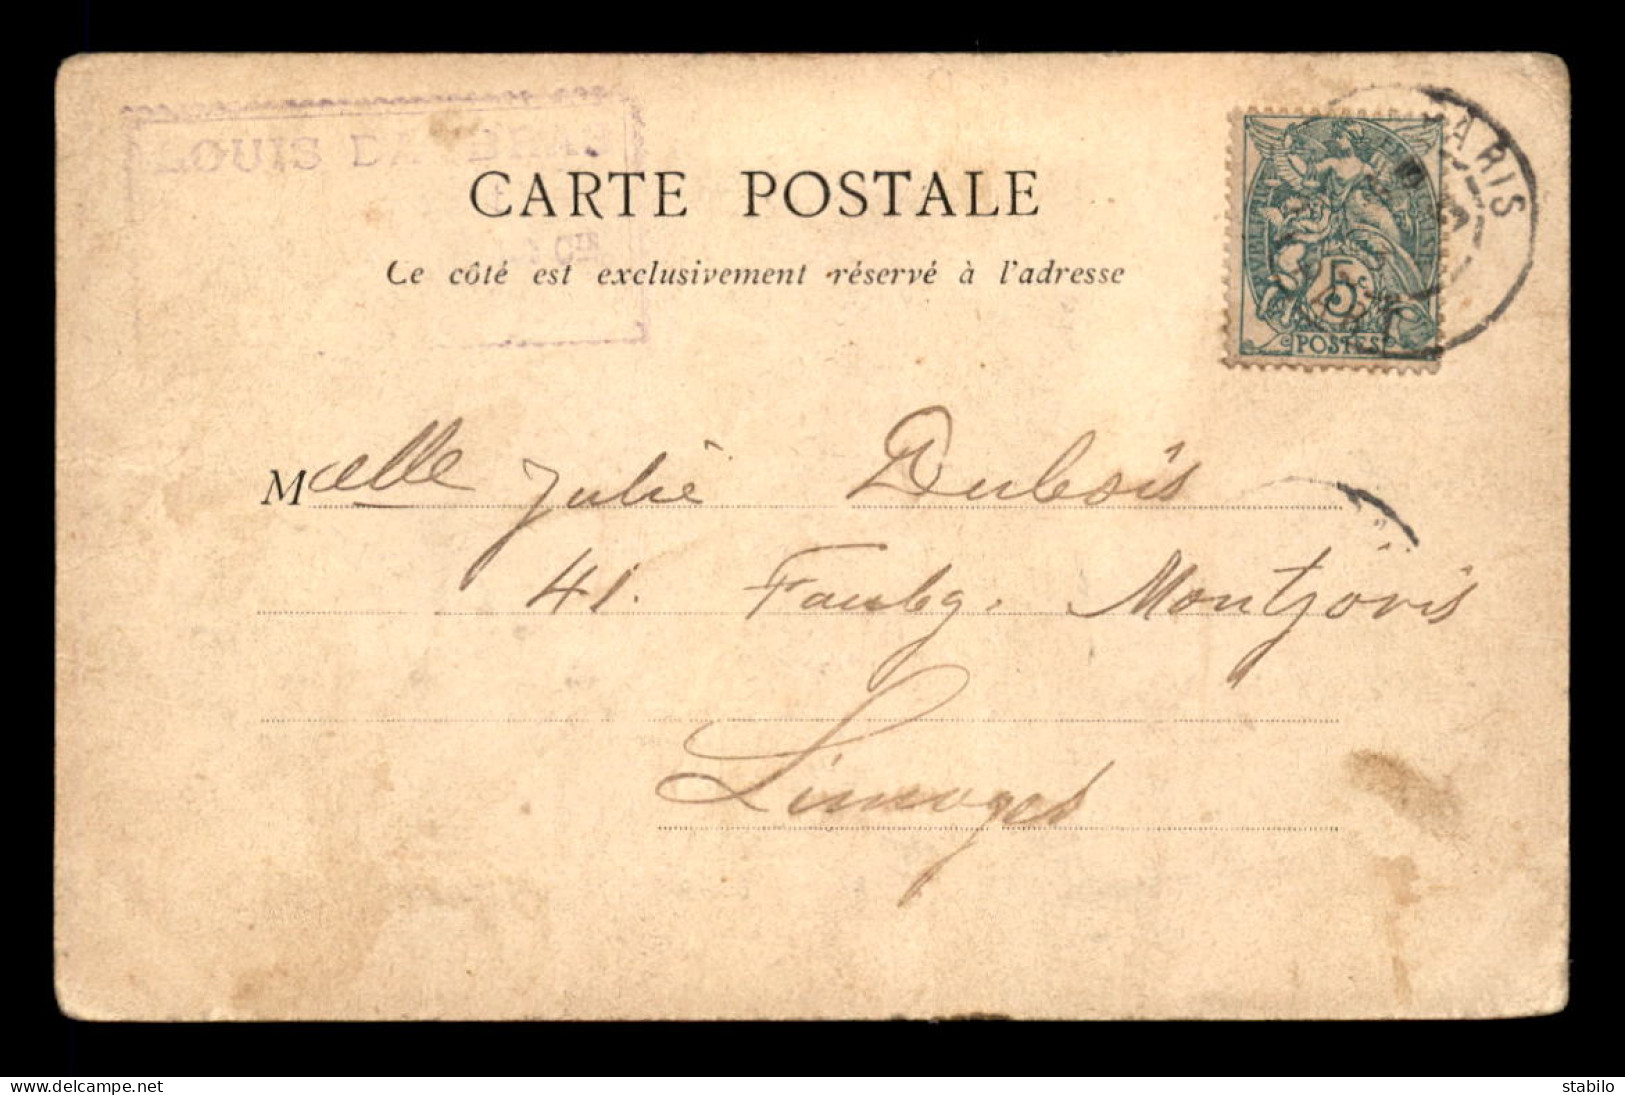 LOUIS
CARTE POSTALE
Ce côté est exclusivement réservé à l'adresse
PARIS
5c
POSTES
Melle Julie Dubois
41. Faubg. Montjovis
Limoges
www.delcampe.net
stabilo